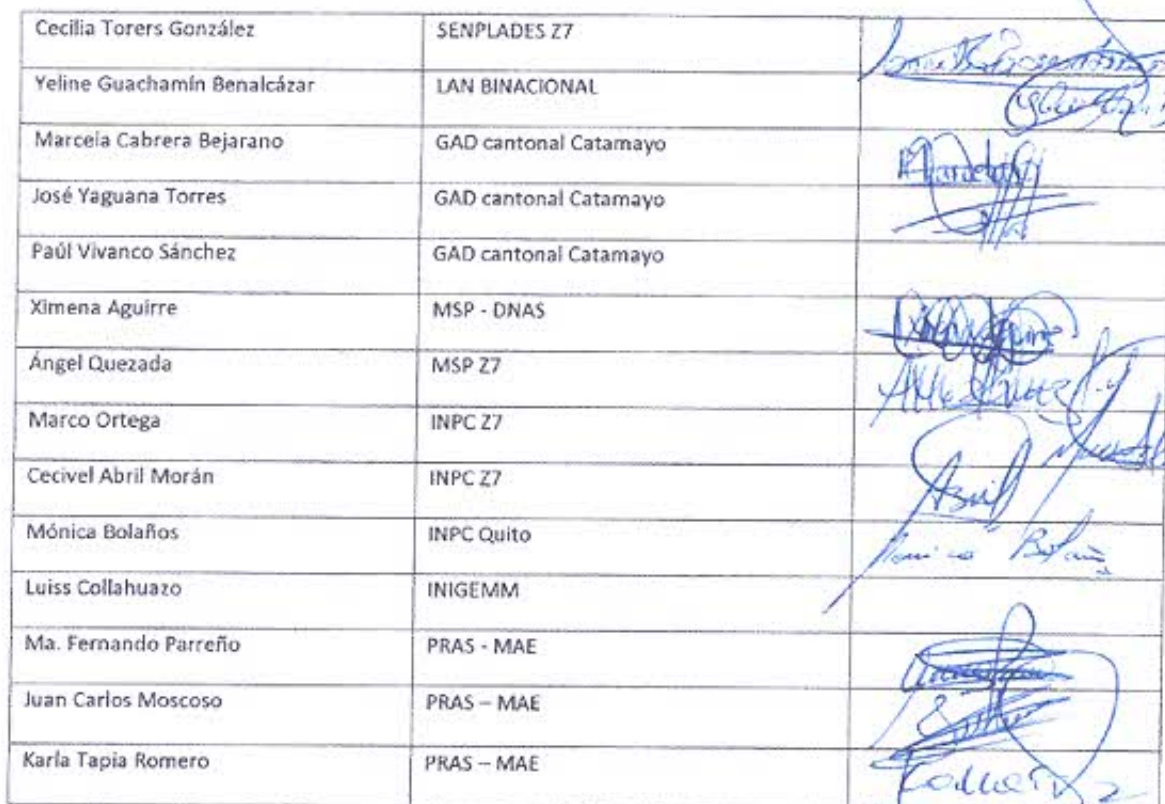 Cecilia Torers González SENPLADES Z7
Yeline Guachamín Benalcázar LAN BINACIONAL
Marcela Cabrera Bejarano GAD cantonal Catamayo
José Yaguana Torres GAD cantonal Catamayo
Paúl Vivanco Sánchez GAD cantonal Catamayo
Ximena Aguirre MSP - DNAS
Ángel Quezada MSP Z7
Marco Ortega INPC Z7
Cecivel Abril Morán INPC Z7 Abril
Mónica Bolaños INPC Quito
Luiss Collahuazo INIGEMM
Ma. Fernando Parreño PRAS - MAE
Juan Carlos Moscoso PRAS – MAE
Karla Tapia Romero PRAS – MAE